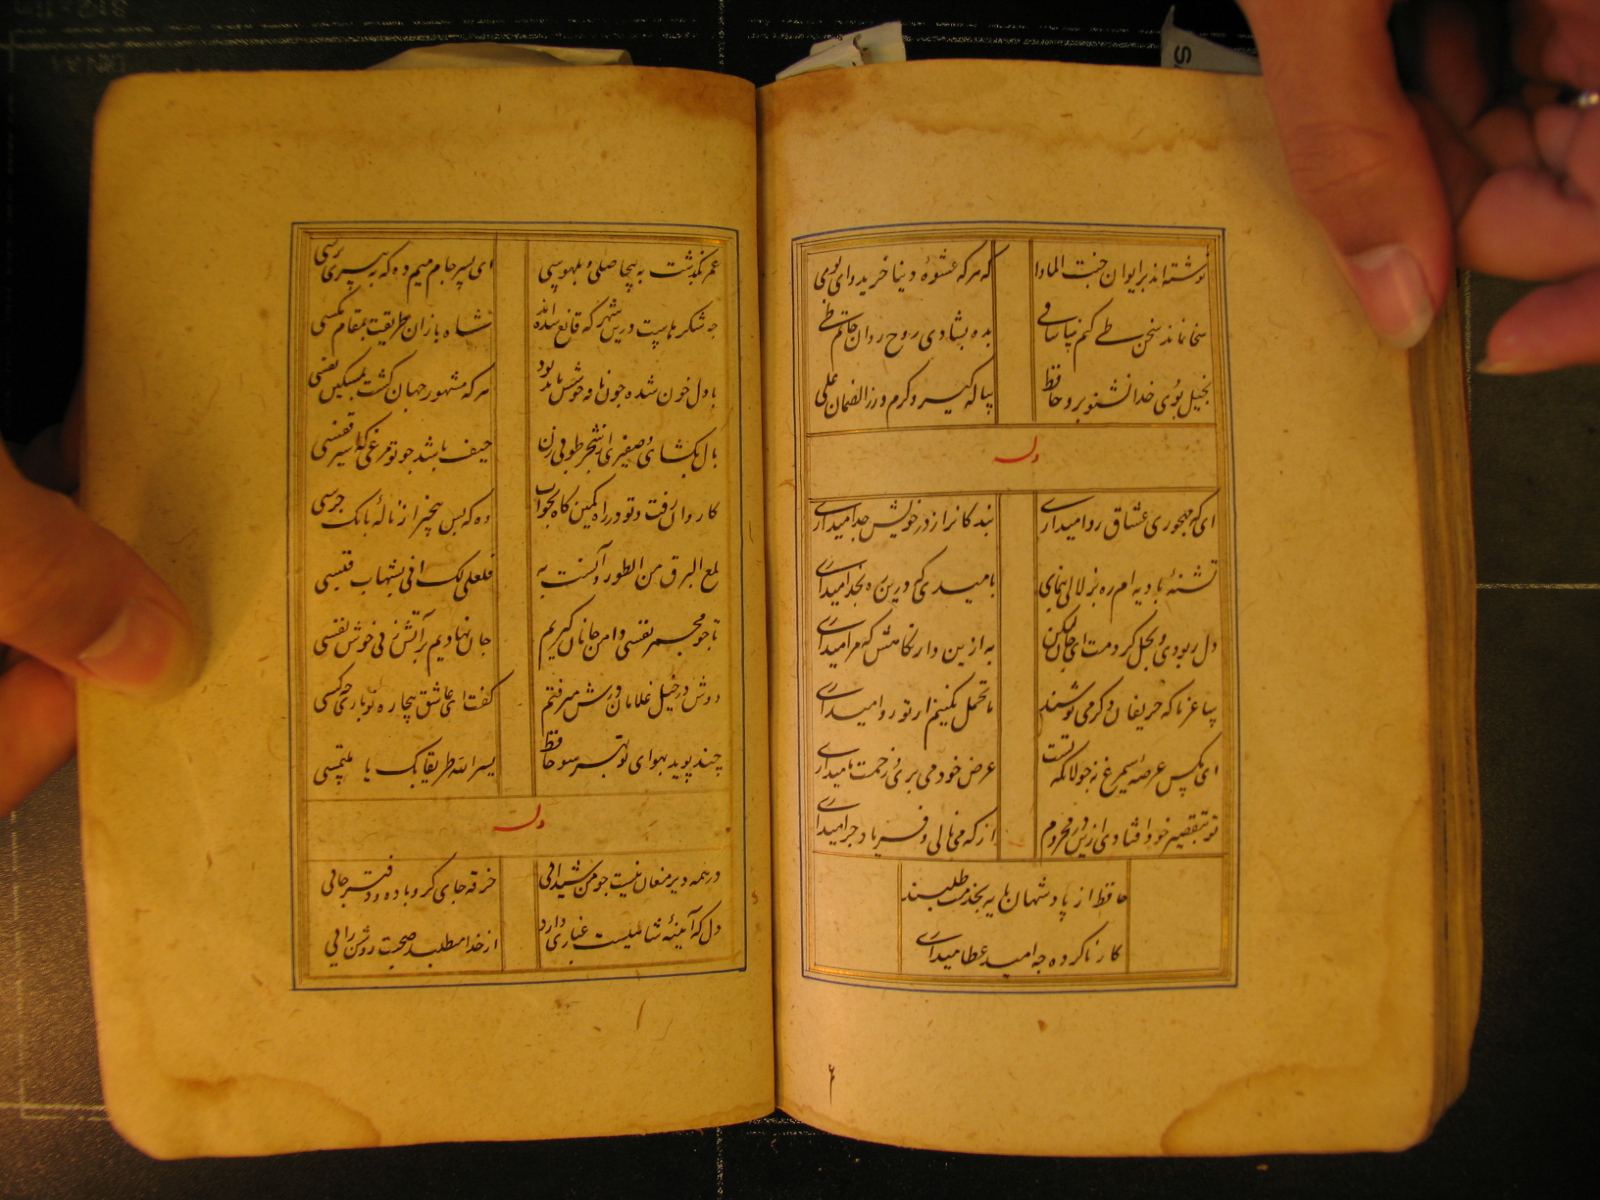 نوشته اند بر ایوان جنت الماوا
که هر که عشوهٔ دینا خرید وای بوی
سخا نماند سخن طی کنم بیا ساقی
بده بشادی روح روان حاتم طی
بخیل بوی خدا نشنود برو حافظ
پیاله گیر و کرم ورز الضمان علی
وله
ای که مهجوری عشاق روا میداری
بندکانرا ز در خویش جدا میداری
تشنهٔ بادیه ام ره بزلالی بنمای
بامیدی که درین ره بخدا میداری
دل ربودی و بحل کردمت ای جان لیکن
به ازین دار نکاهش که مرا میداری
ساغر ما که حریفان دکر می نوشند
ما تحمل بکنیم ار تو روا میداری
ای مکس عرصهٔ سیمرغ نه جولانکه تست
عرض خود می بری و زحمت ما میداری
تو بتقصیر خود افتادی ازین در محروم
از که می نالی و فریاد چرا میداری
حافظ از پادشهان پایه بخدمت طلبند
کار ناکرده چه امید عطا میداری
۲
عمر بکذشت به بیحاصلی و بلهوسی
ای پسر جام میم ده که به پیری برسی
چه شکرهاست درین شهر که قانع شده اند
شاه بازان طریقت بمقام مکسی
با دل خون شده چون نافه خوشش باید بود
هر که مشهور جهان کشت بمسکین نفسی
بال بکشای و صفیر از شجر طوبی زن
حیف باشد چو تو مرغی که اسیر قفسی
کاروان رفت و تو در راه کمین کاه بخواب
وه که بس بیخبر از نالهٔ بانک جرسی
لمع البرق من الطور و آنست به
فلعلی لک اتی بشهاب قبسی
تا چو مجمر نفسی دامن جانان کیریم
جان نهادیم بر آتش ز پی خوش نفسی
دوش در خیل غلامان درش میرفتم
کفت ای عاشق بیچاره تو باری چه کسی
چند پوید بهوای تو بهر سو حافظ
یسر الله طریقا بک یا ملتمسی
وله
در همه دیر مغان نیست چو من شیدائی
خرقه جای کرو باده و دفتر جائی
دل که آیینهٔ شاهیست غباری دارد
از خدا میطلبد صحبت روشن رایی